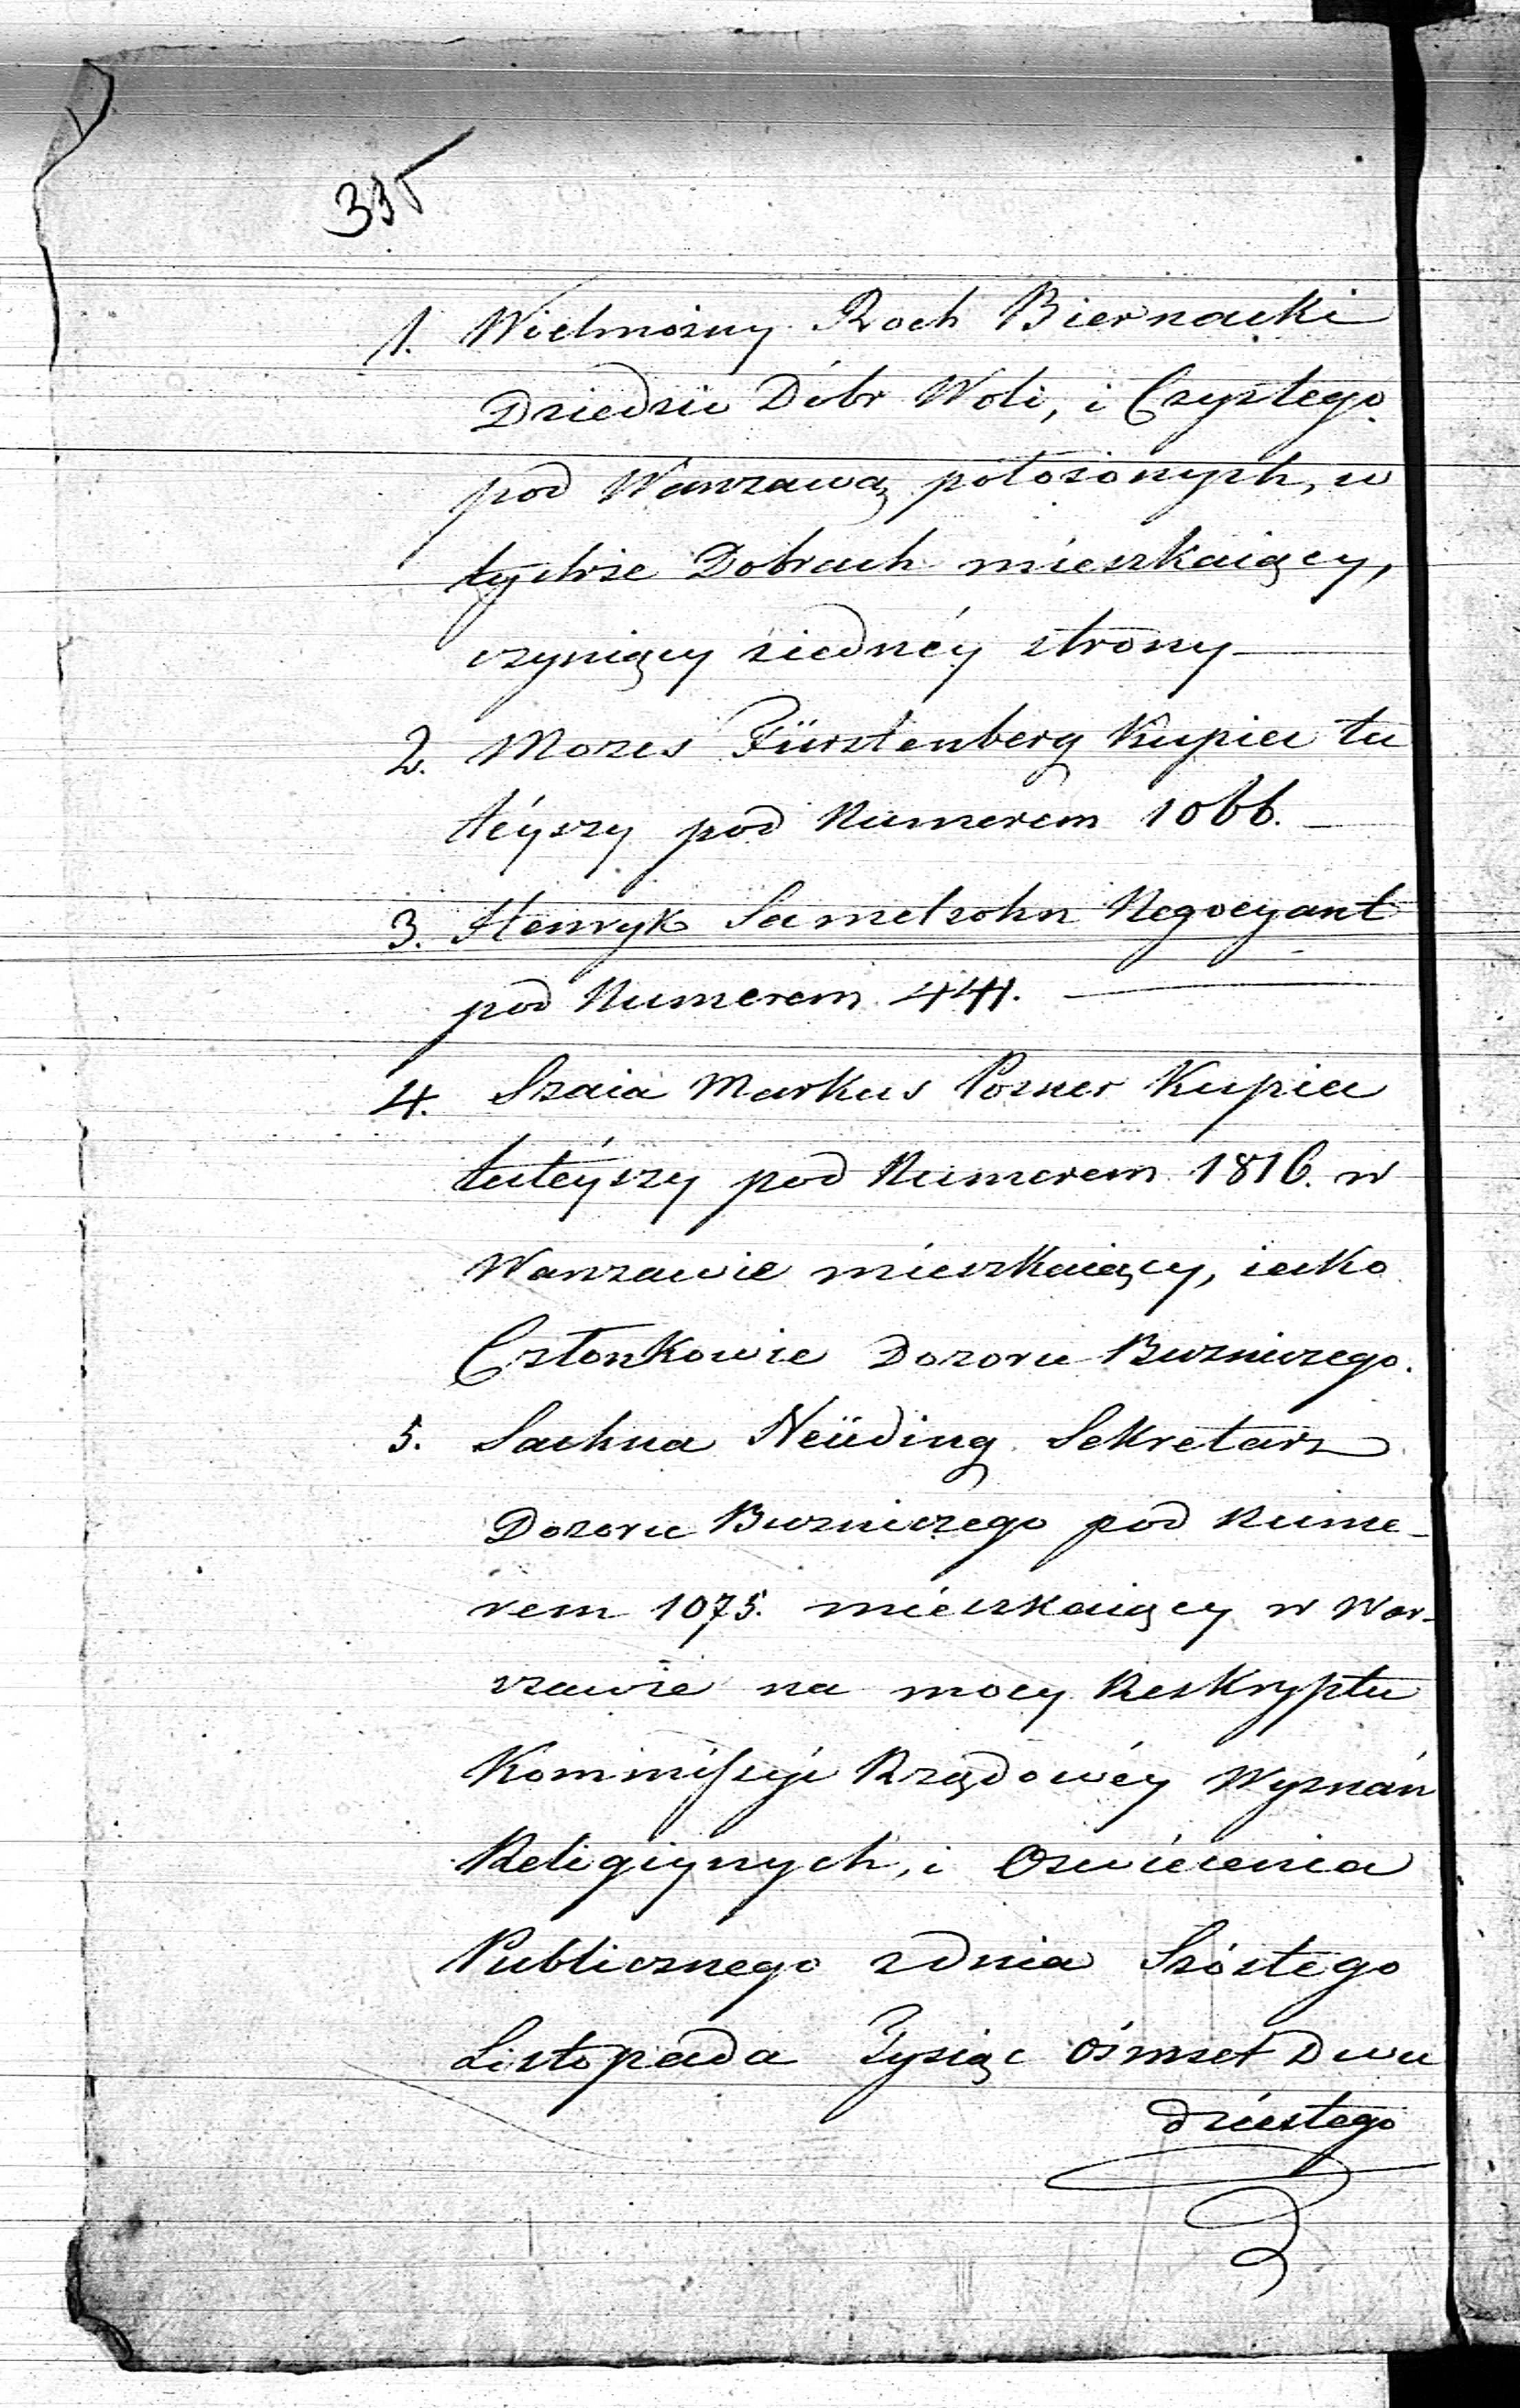 335
1. Wielmożny Roch Biernacki
Dziedzic Dóbr Woli, i Czystego
pod Warszawą położonych, w
tychże Dobrach mieszkaiący,
czyniący ziednéy strony
2. Mozes Fürstenberg Kupiec tu
téyszy pod Numerem 1066.
3. Henryk Samelsohn Negocyant
pod Numerem 441.
4. Szaia Markus Posner Kupiec
tutéyszy pod Numerem 1816. w
Warszawie mieszkaiący, iako
Członkowie Dozoru Bużniczego.
5. Sachna Neüding Sekretarz
Dozoru Bużniczego pod Nume-
rem 1075. mieszkaiący w War-
szawie na mocy Reskryptu
Kommissyi Rządowéy Wyznań
Religiynych, i Oświecenia
Publicznego zdnia Szóstego
Listopada Tysiąc ośmset Dwu
dziestego